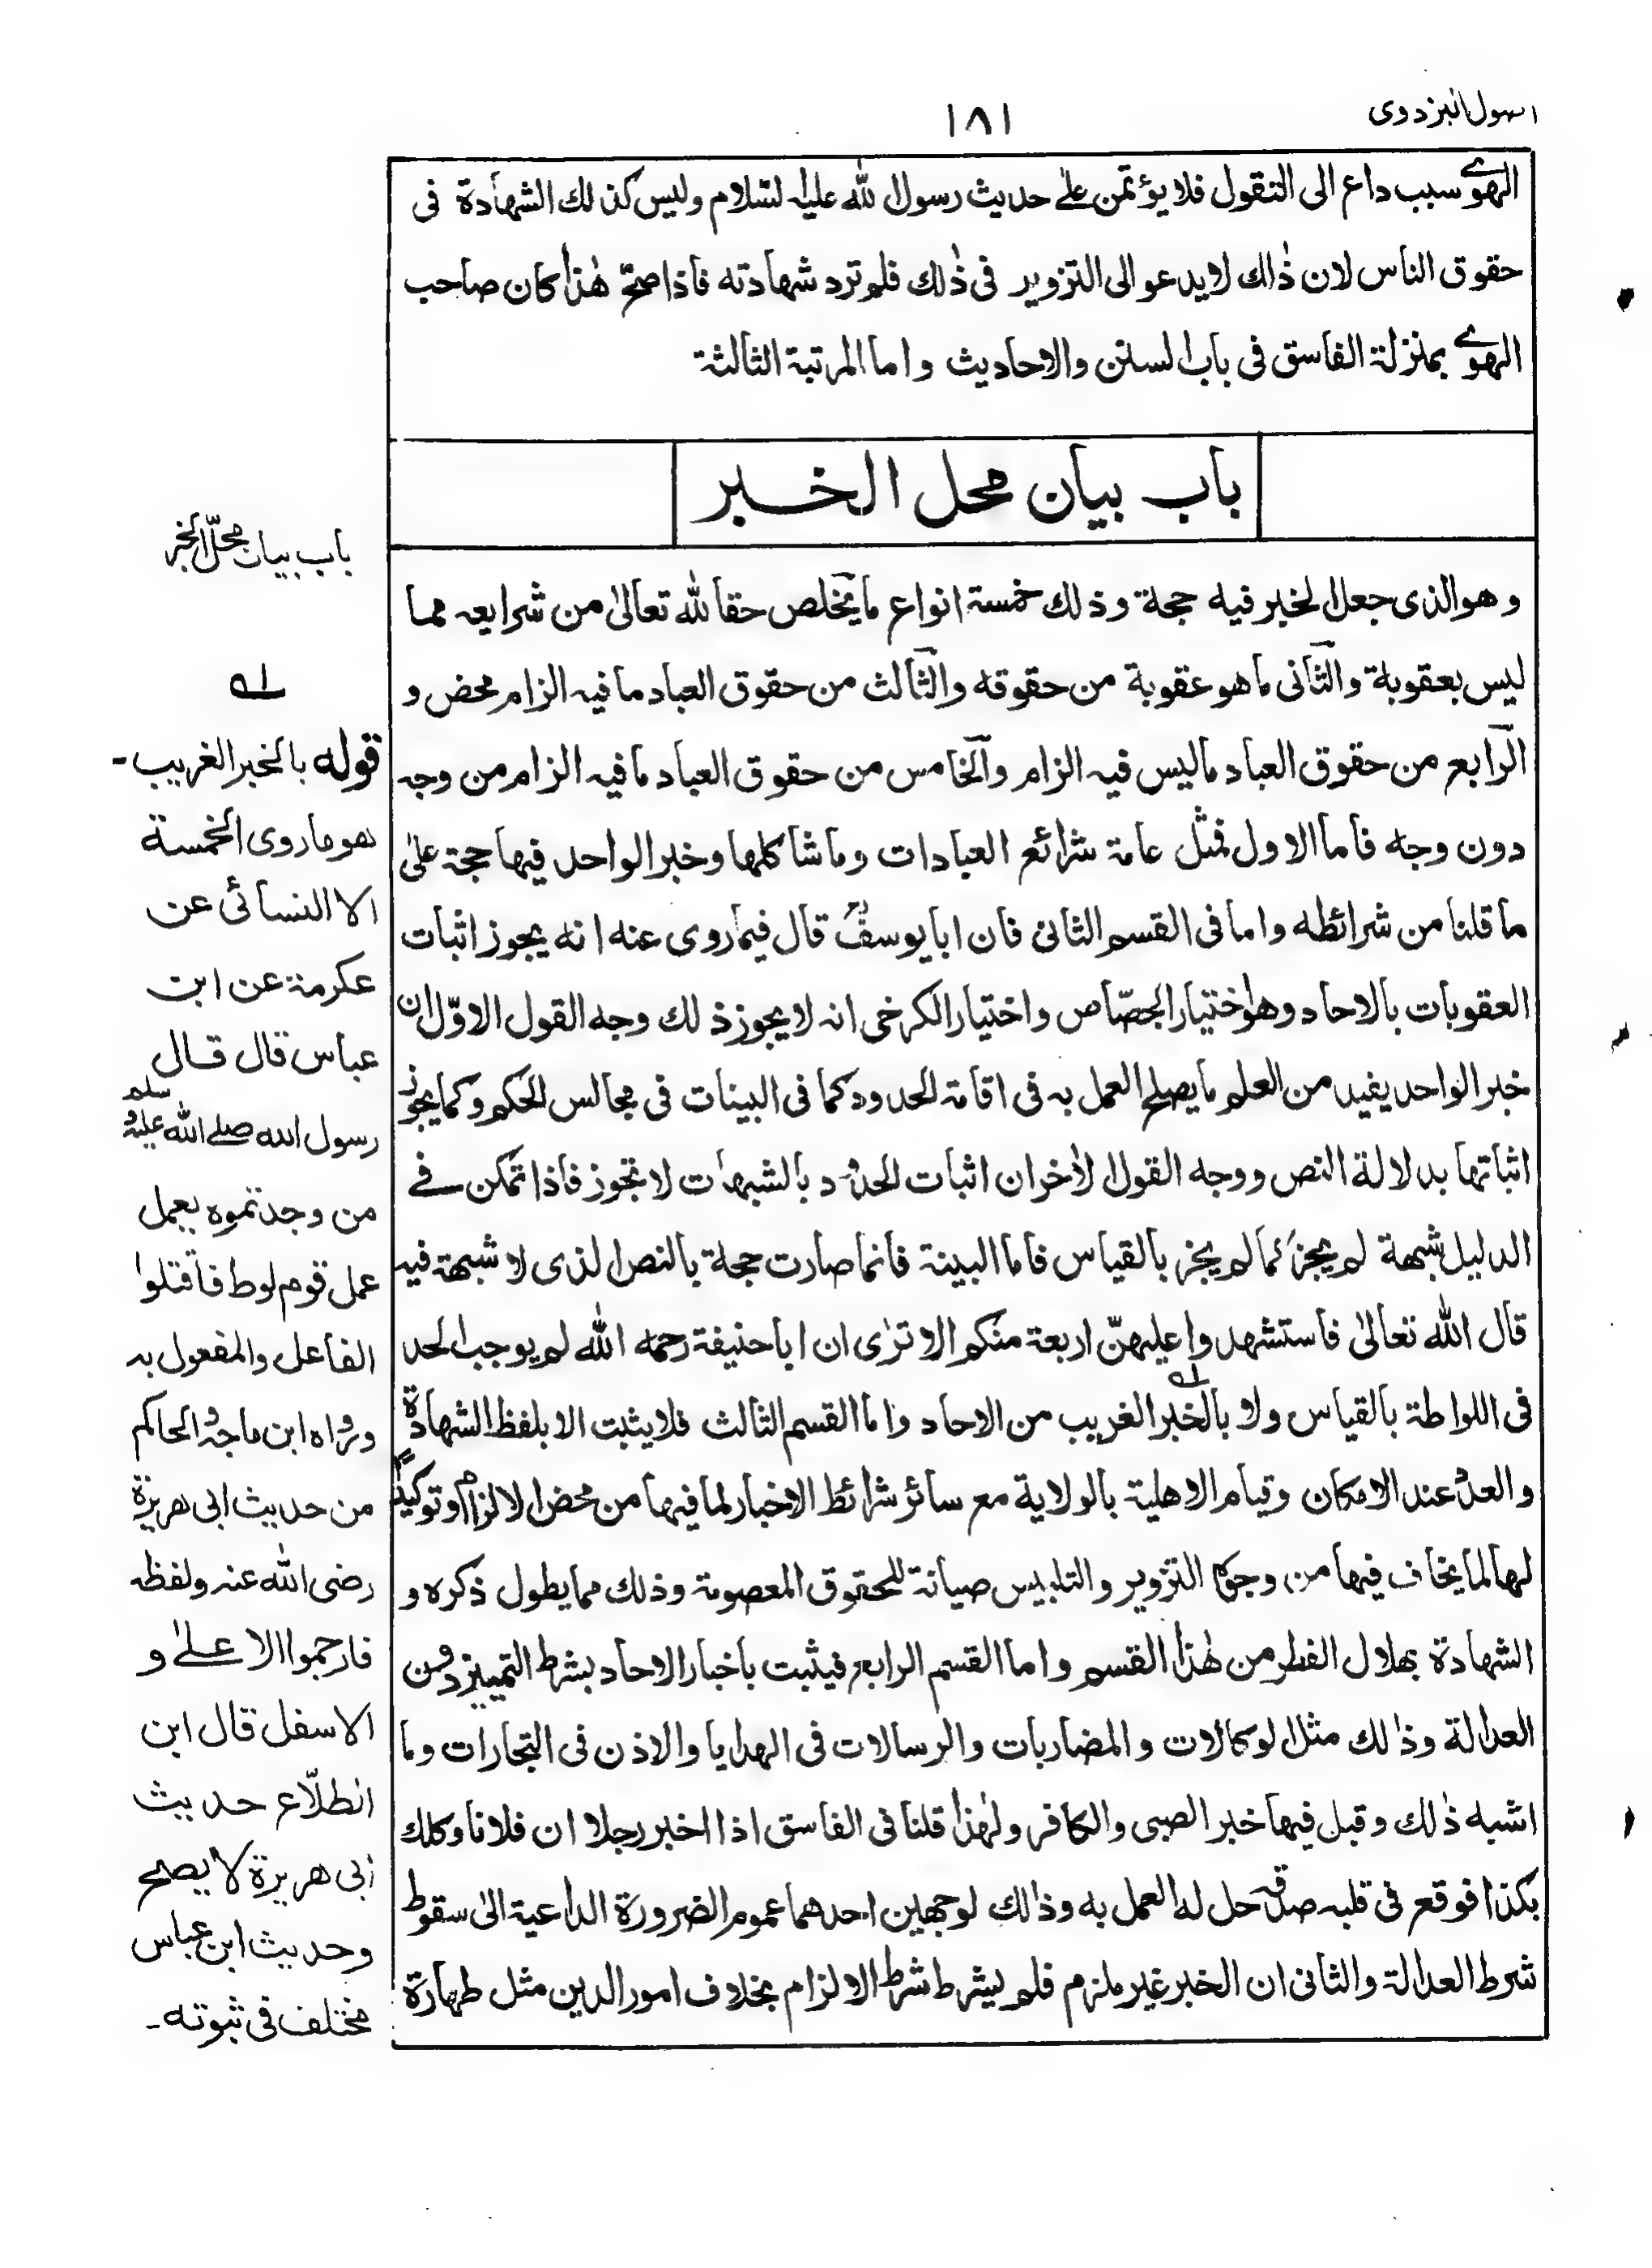 اصول البزدوى
١٨١
الهوے سبب داع الى التقول فلا يؤتمن علے حديث رسول الله عليه السلام وليس كذلك الشهادة فى
حقوق الناس لان ذٰلك لا يدعو الى التزوير فى ذٰلك فلم ترد شهادته فاذا صحّ هٰذا كان صاحب
الهوے بمنزلة الفاسق فى باب السنن والاحاديث واما المرتبة الثالثة
باب بيان محل الخبر
وهو الذى جعل الخبر فيه حجة وذلك خمسة انواع ما يخلص حقا لله تعالىٰ من شرايعه مما
ليس بعقوبة والثانى ما هو عقوبة من حقوقه والثالث من حقوق العباد ما فيه الزام محض و
الرابع من حقوق العباد ما ليس فيه الزام والخامس من حقوق العباد ما فيه الزام من وجه
دون وجه فاما الاول فمثل عامة شرائع العبادات وما شاكلها وخبر الواحد فيها حجة علىٰ
ما قلنا من شرائطه واما فى القسم الثانى فان ابا يوسفؒ قال فيما روى عنه انه يجوز اثبات
العقوبات بالاحاد وهو اختيار الجصّاص واختيار الكرخى انه لا يجوز ذلك وجه القول الاوّل ان
خبر الواحد يفيد من العلم ما يصلح العمل به فى اقامة الحدود كما فى البينات فى مجالس الحكم وكما يجوز
اثباتها بدلالة النص ووجه القول الاٰخر ان اثبات الحدود بالشبهات لا تجوز فاذا تمكن فے
الدليل شبهة لم يجز كما لم يجز بالقياس فاما البينة فانما صارت حجة بالنص الذى لا شبهة فيه
قال الله تعالىٰ فاستشهدوا عليهنّ اربعة منكم الا ترٰى ان ابا حنيفة رحمه الله لم يوجب الحد
فى اللواطة بالقياس ولا بالخبر الغريب من الاحاد واما القسم الثالث فلا يثبت الا بلفظ الشهادة
والعدد عند الامكان وقيام الاهلية بالولاية مع سائر شرائط الاخبار لما فيها من محض الالزام وتوكيدًا
لها لما يخاف فيها من وجوه التزوير والتلبيس صيانة للحقوق المعصومة وذلك مما يطول ذكره و
الشهادة بهلال الفطر من هٰذا القسم واما القسم الرابع فيثبت باخبار الاحاد بشرط التمييز دون
العدالة وذٰلك مثل الوكالات والمضاربات والرسالات فى الهدايا والاذن فى التجارات وما
اشبه ذٰلك وقبل فيها خبر الصبى والكافر ولهٰذا قلنا فى الفاسق اذا اخبر رجلا ان فلانا وكلك
بكذا فوقع فى قلبه صدقه حل له العمل به وذٰلك لوجهين احدهما عموم الضرورة الداعية الىٰ سقوط
شرط العدالة والثانى ان الخبر غير ملزم فلم يشرط شرط الالزام بخلاف امور الدين مثل طهارة
باب بيان محلّ الخبر
لـه
قوله بالخبر الغريب-
هو ما روى الخمسة
الا النسائى عن
عكرمة عن ابن
عباس قال قال
رسول الله صلے الله عليه وسلم
من وجدتموه يعمل
عمل قوم لوط فاقتلوا
الفاعل والمفعول به
ورواه ابن ماجة والحاكم
من حديث ابى هريرة
رضى الله عنه ولفظه
فارجموا الاعلىٰ و
الاسفل قال ابن
الطلّاع حديث
ابى هريرة لا يصح
وحديث ابن عباس
مختلف فى ثبوته-